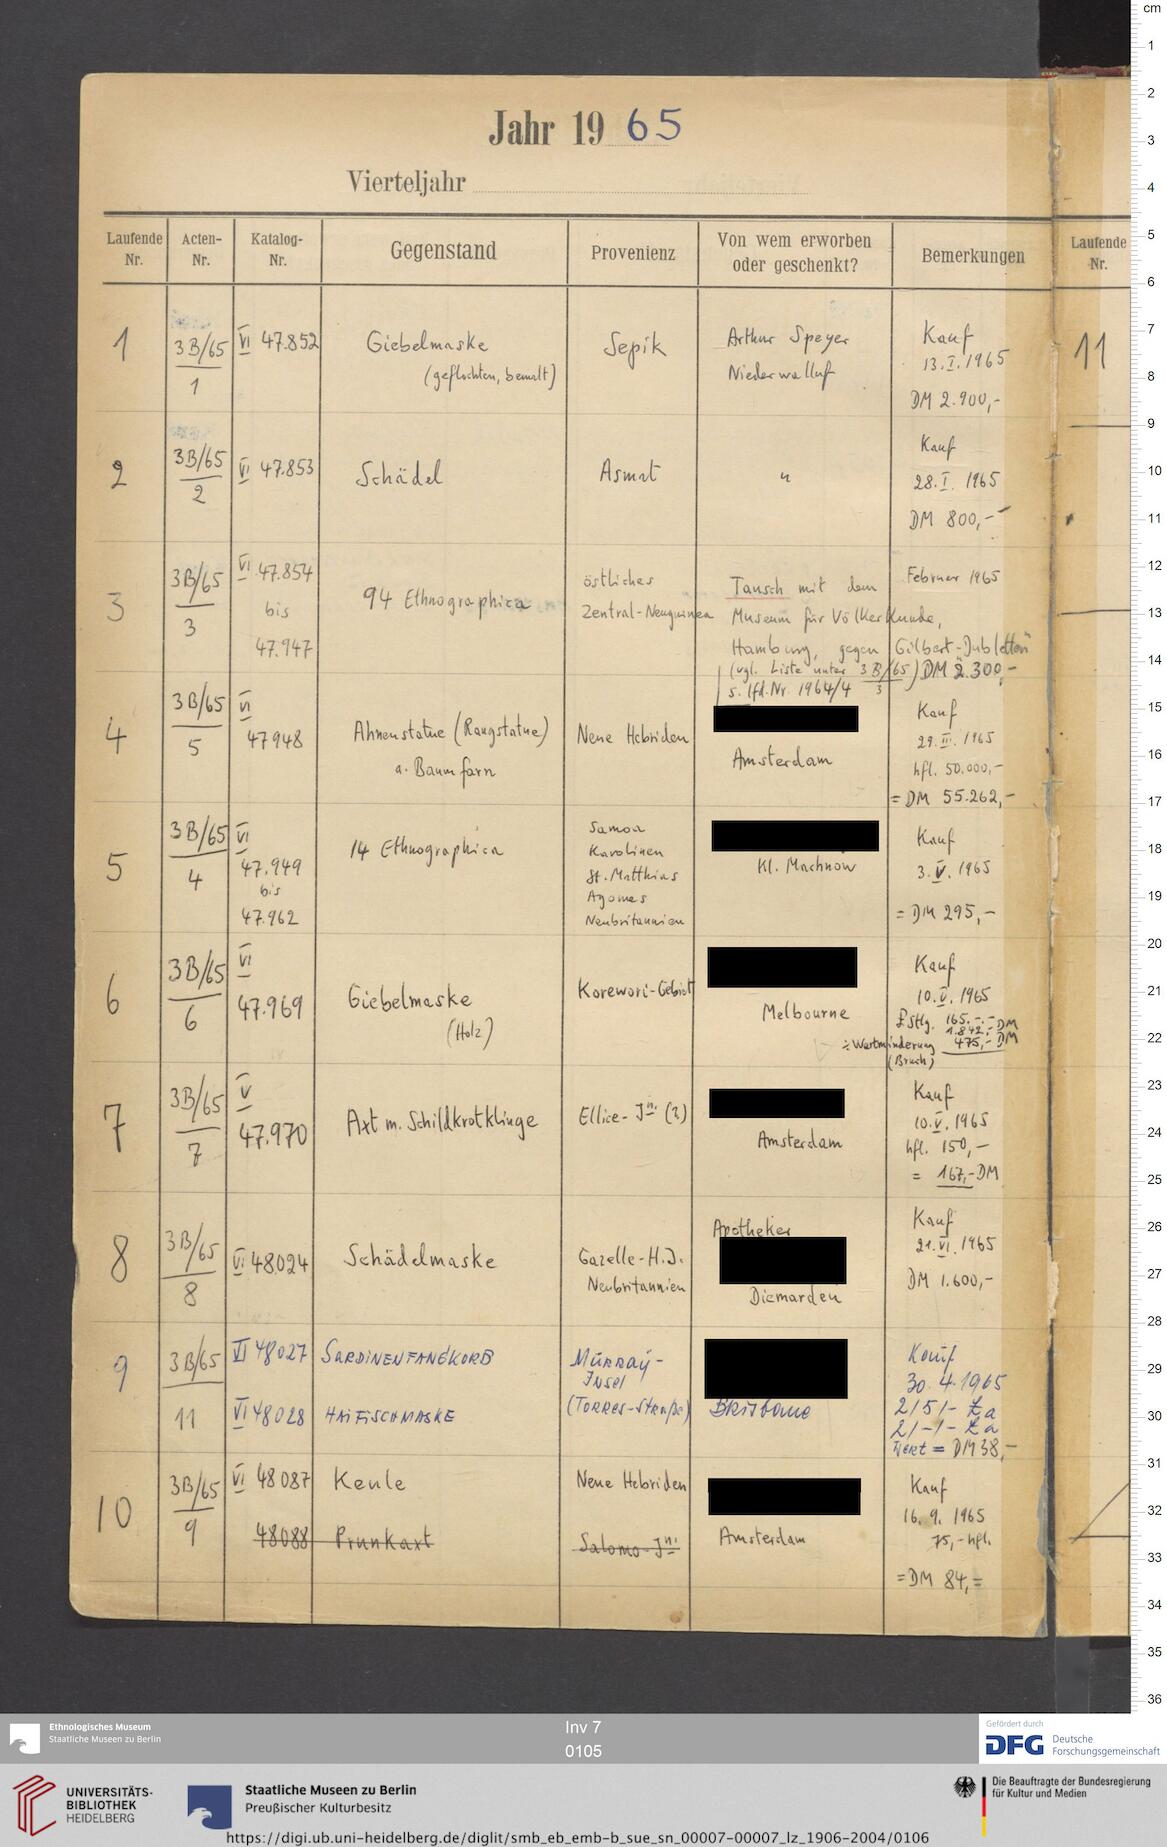 Jahr 1965
Vierteljahr
Laufende Nr.
Acten-Nr.
Katalog-Nr.
Gegenstand
Provenienz
Von wem erworben oder geschenkt?
Bemerkungen
Laufende Nr.
1
3B/65
1
VI 47.852
Giebelmaske
(geflochten, bemalt)
Sepik
Arthur Speyer
Niederwalluf
Kauf
13.I.1965
DM 2.900,-
11
2
3B/65
2
VI 47.853
Schädel
Asmat
"
Kauf
28.I.1965
DM 800,-
3
3B/65
3
VI 47.854
bis
47.947
94 Ethnographica
östliches
Zentral-Neuguinea
Tausch mit dem
Museum für Völkerkunde,
Hamburg, gegen Gilbert-Dubletten
(vgl. Liste unter 3B/65/3)
s. lfd. Nr. 1964/4
Februar 1965
DM 2.300,-
4
3B/65
5
VI
47948
Ahnenstatue (Rangstatue)
a. Baumfarn
Neue Hebriden
Amsterdam
Kauf
29.III.1965
hfl. 50.000,-
= DM 55.262,-
5
3B/65
4
VI
47.949
bis
47.962
14 Ethnographica
Samoa
Karolinen
St. Matthias
Agomes
Neubritannien
Kl. Machnow
Kauf
3.V.1965
= DM 295,-
6
3B/65
6
VI
47.969
Giebelmaske
(Holz)
Korewori-Gebiet
Melbourne
Kauf
10.V.1965
£ Stlg. 165.-.-
1.842,- DM
÷ Wertminderung 475,- DM
(Bruch)
7
3B/65
7
V
47.970
Axt m. Schildkrotklinge
Ellice-Jn. (?)
Amsterdam
Kauf
10.V.1965
hfl. 150,-
= 167,- DM
8
3B/65
8
VI 48024
Schädelmaske
Gazelle-H.J.
Neubritannien
Apotheker
Diemarden
Kauf
21.VI.1965
DM 1.600,-
9
3B/65
11
VI 48027
SARDINENFANGKORB
VI 48028
HAIFISCHMASKE
Murray-
Insel
(Torres-Straße)
Brisbane
Kauf
30.4.1965
2/5/- £a
2/-/- £a
Wert = DM 38,-
10
3B/65
9
VI 48087
Keule
Neue Hebriden
48088
Prunkaxt
Salomo-Jn.
Amsterdam
Kauf
16.9.1965
75,- hfl.
= DM 84,=
cm
1
2
3
4
5
6
7
8
9
10
11
12
13
14
15
16
17
18
19
20
21
22
23
24
25
26
27
28
29
30
31
32
33
34
35
36
Ethnologisches Museum
Staatliche Museen zu Berlin
Inv 7
0105
Gefördert durch
DFG
Deutsche
Forschungsgemeinschaft
UNIVERSITÄTS-
BIBLIOTHEK
HEIDELBERG
Staatliche Museen zu Berlin
Preußischer Kulturbesitz
Die Beauftragte der Bundesregierung
für Kultur und Medien
https://digi.ub.uni-heidelberg.de/diglit/smb_eb_emb-b_sue_sn_00007-00007_lz_1906-2004/0106